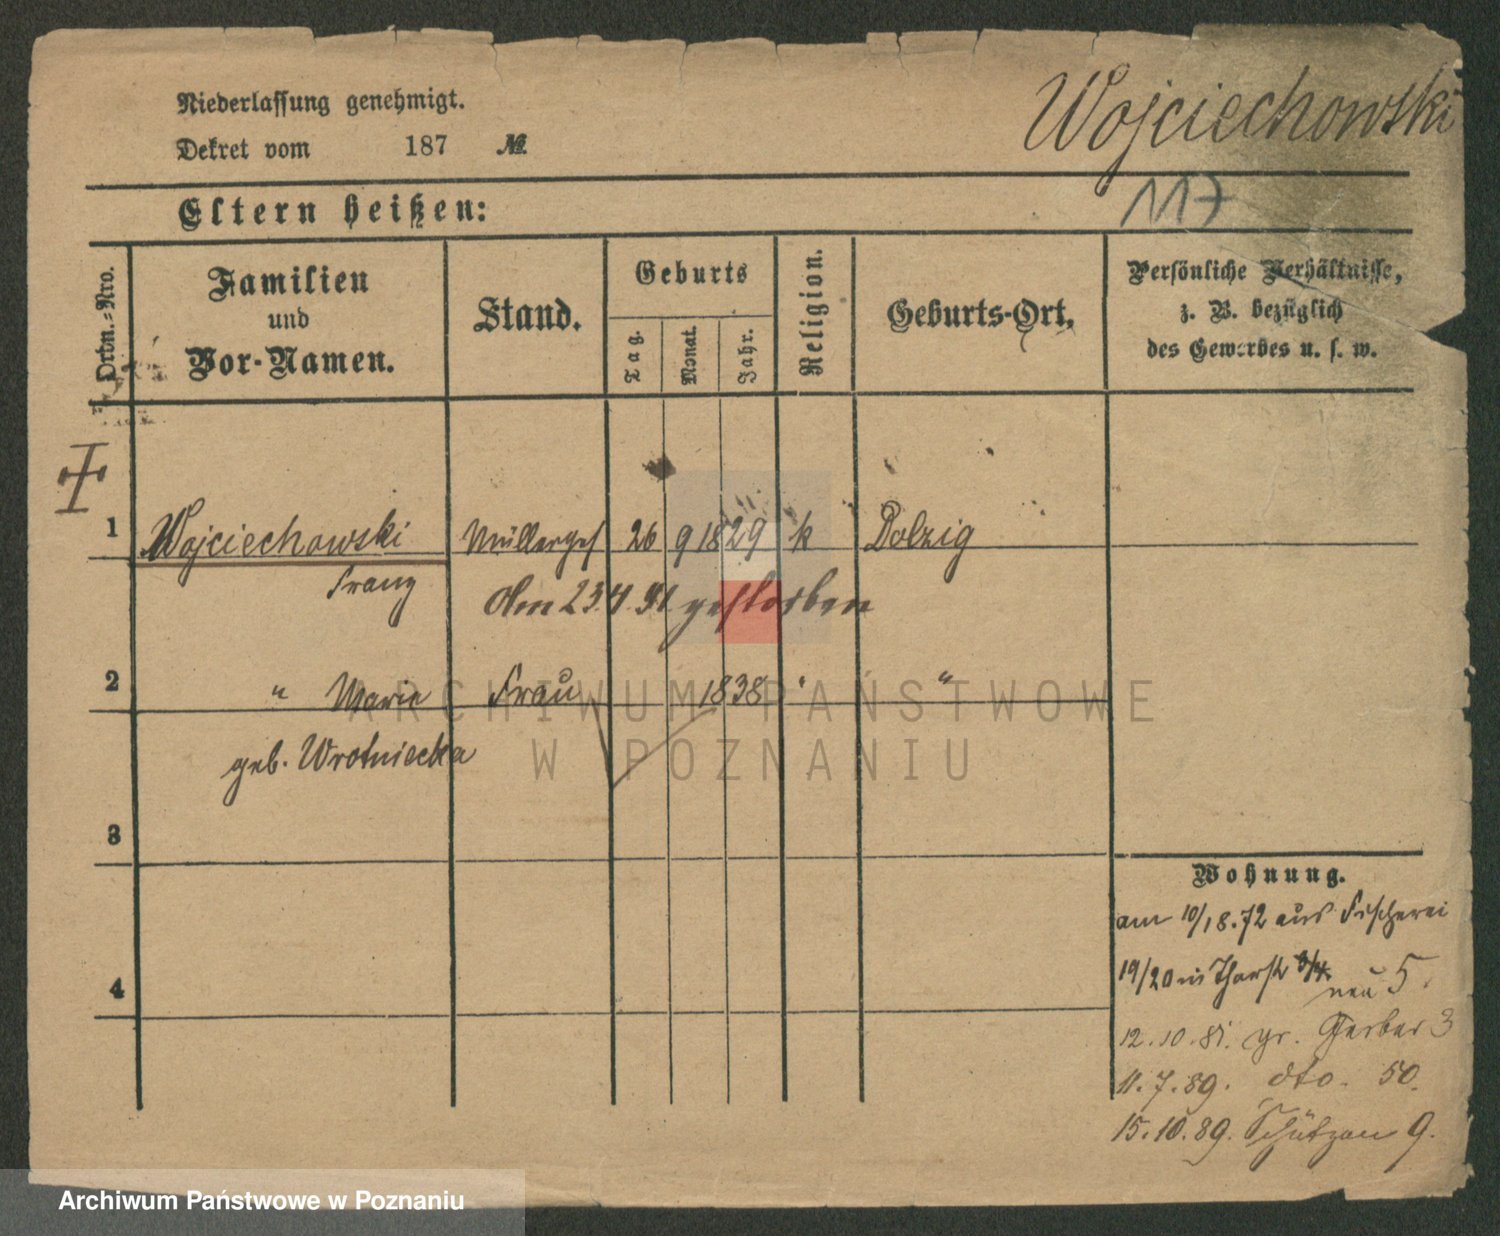 Niederlassung genehmigt.
Wojciechowski
Dekret vom 187 №
117
Eltern heißen:
Ordn.-Nro.
Familien
und
Vor-Namen.
Stand.
Geburts
Tag.
Monat.
Jahr.
Religion.
Geburts-Ort.
Persönliche Verhältnisse,
z. B. bezüglich
des Gewerbes u. s. w.
1 Wojciechowski Müllerges 26 9 1829 k Dolzig
Franz
Am 23.4.91 gestorben
2 " Marie Frau 1838 " "
geb. Wrotniecka
3
4
Wohnung.
am 10/18.72 aus Fischerei
19/20 in Thorst 3/4.
neu 5.
12.10.81. gr. Gerber 3
11.7.89. dto. 50.
15.10.89. Schützen 9.
ARCHIWUM PAŃSTWOWE
W POZNANIU
Archiwum Państwowe w Poznaniu